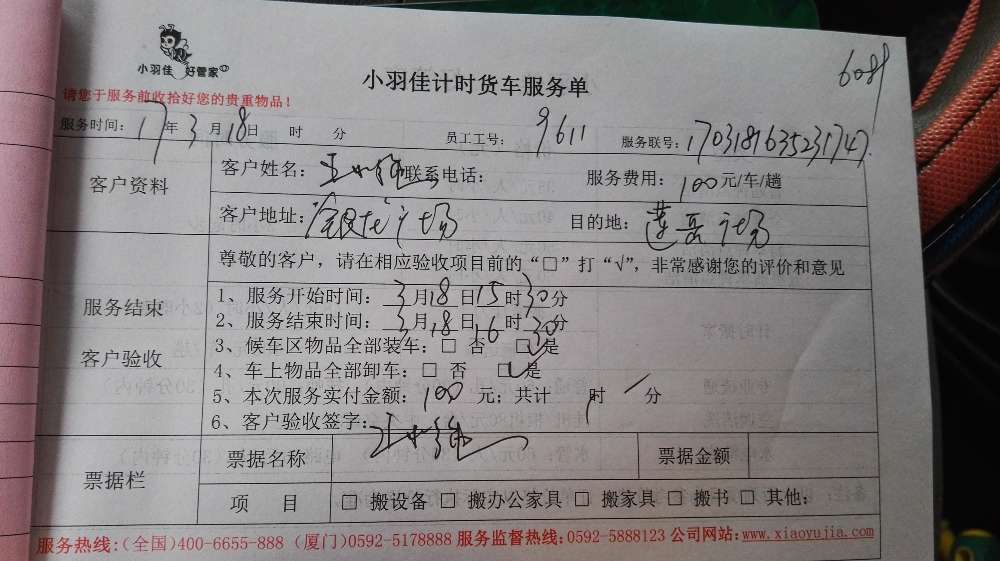 小羽佳 好管家
小羽佳计时货车服务单
6088
请您于服务前收拾好您的贵重物品！
服务时间：17年3月18日 时 分 员工工号：9611 服务联号：1703181635231747
客户资料
客户姓名： 联系电话： 服务费用：100元/车/趟
客户地址：银龙广场 目的地：莲岳广场
尊敬的客户，请在相应验收项目前的“□”打“√”，非常感谢您的评价和意见
服务结束
客户验收
1、服务开始时间：3月18日15时30分
2、服务结束时间：3月18日16时30分
3、候车区物品全部装车：□ 否 □是
4、车上物品全部卸车：□ 否 □是
5、本次服务实付金额：100元；共计 1时 / 分
6、客户验收签字：
票据栏
票据名称 票据金额
项 目 □ 搬设备 □ 搬办公家具 □ 搬家具 □ 搬书 □ 其他：
服务热线：（全国）400-6655-888（厦门）0592-5178888 服务监督热线：0592-5888123 公司网站：www.xiaoyujia.com